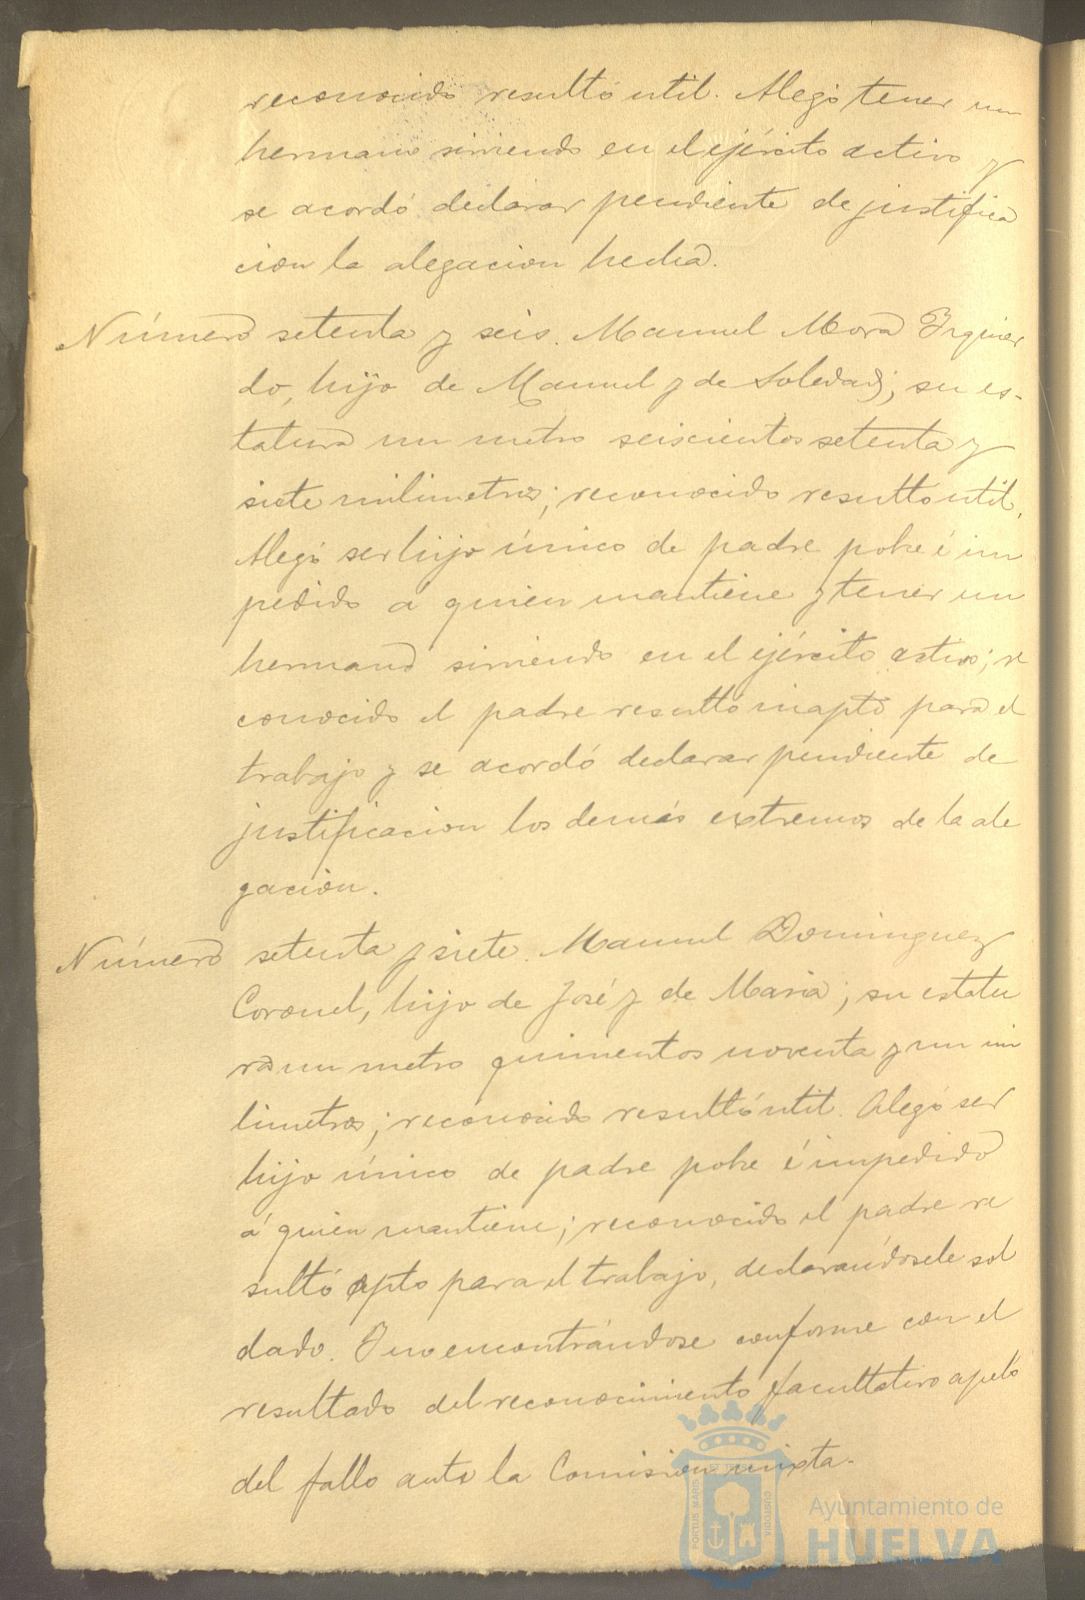 reconocido resultó util. Alegó tener un
hermano sirviendo en el ejército activo y
se acordó declarar pendiente de justifica
cion la alegacion hecha.
Número setenta y seis. Manuel Mora Izquier
do, hijo de Manuel y de Soledad; su es-
tatura un metro seiscientos setenta y
siete milimetros; reconocido resultó util.
Alegó ser hijo único de padre pobre é im
pedido a quien mantiene y tener un
hermano sirviendo en el ejército activo; re
conocido el padre resultó inapto para el
trabajo y se acordó declarar pendiente de
justificacion los demás extremos de la ale
gación.
Número setenta y siete. Manuel Dominguez
Coronel, hijo de José y de Maria; su estatu
ra un metro quinientos noventa y un mi
limetros; reconocido resultó util. Alegó ser
hijo único de padre pobre é impedido
á quien mantiene; reconocido el padre re
sultó apto para el trabajo, declarándosele sol
dado. Y no encontrándose conforme con el
resultado del reconocimiento facultativo apeló
del fallo ante la Comision mixta.
PORTUS MARIS
CUSTODIA
Ayuntamiento de
HUELVA